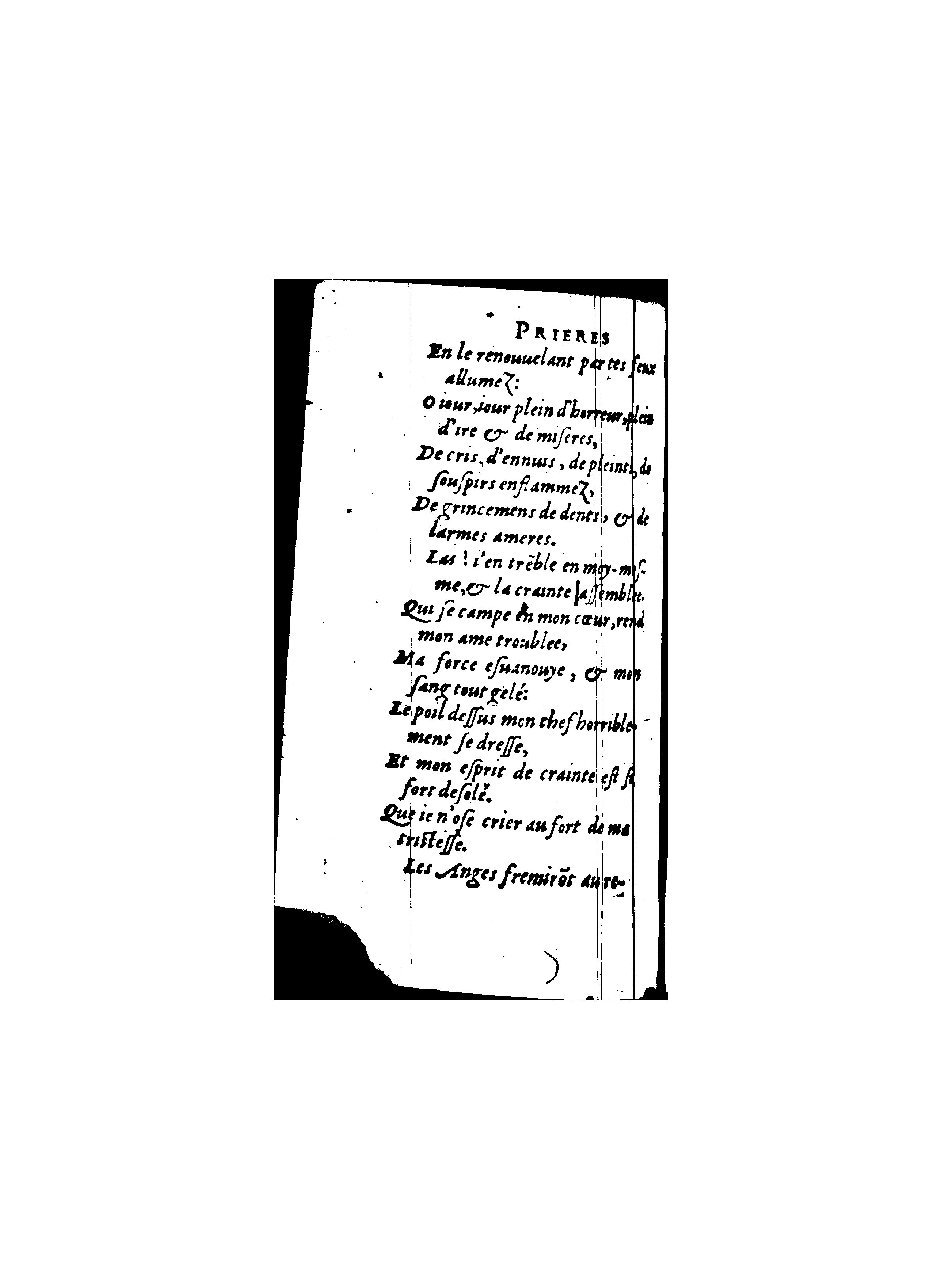 PRIERES
En le renouuelant par tes feux
allumeZ:
O iour, iour plein d'horreur, plein
d'ire & de miſeres,
De cris, d'ennuis, de pleints, de
ſouſpirs enflammeZ,
De grincemens de dents, & de
larmes ameres.
Las! i'en trẽble en moy-meſ-
me, & la crainte aſſemblee,
Qui ſe campe en mon cœur, rend
mon ame troublee,
Ma force eſuanouye, & mon
ſang tout gelé:
Le poil deſſus mon chef horrible-
ment ſe dreſſe,
Et mon eſprit de crainte eſt ſi
fort deſolé,
Que ie n'oſe crier au fort de ma
triſteſſe.
Les Anges fremirõt au re-